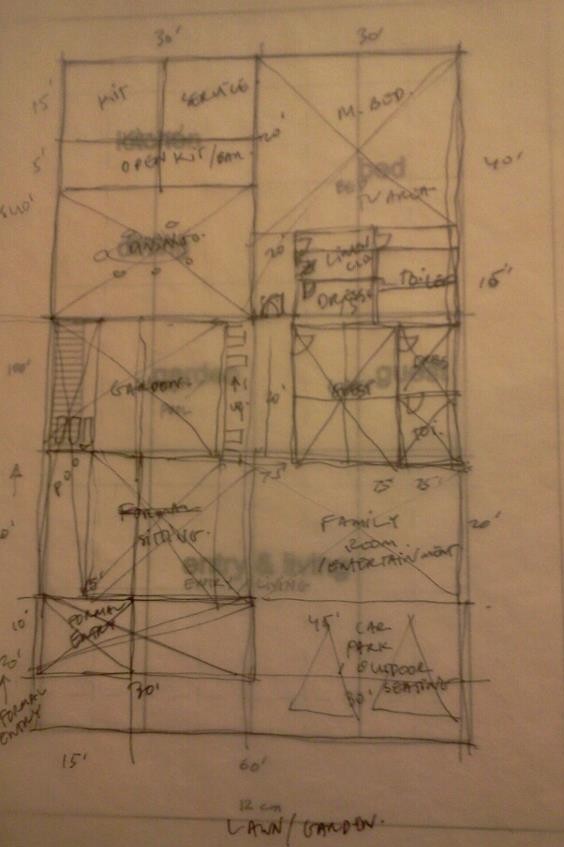 30'
30'
15'
KIT
SERVICE
M. BED.
kitchen
20'
5'
OPEN KIT/BAR
bed
40'
TV AREA
DINING
20'
LINEN
CLO
TOILET
DRESS
15'
100'
garden
GARDEN
UP
GUEST
guest
DRES
TOI.
25'
25'
25'
FORMAL
SITTING.
FAMILY
ROOM
/ENTERTAINMENT
20'
entry & living
ENTRY / LIVING
15'
10'
FORMAL
ENTRY
45'
CAR
PARK
OUTDOOR
SEATING
30'
20'
FORMAL
ENTRY
30'
15'
60'
12 cm
LAWN/GARDEN.